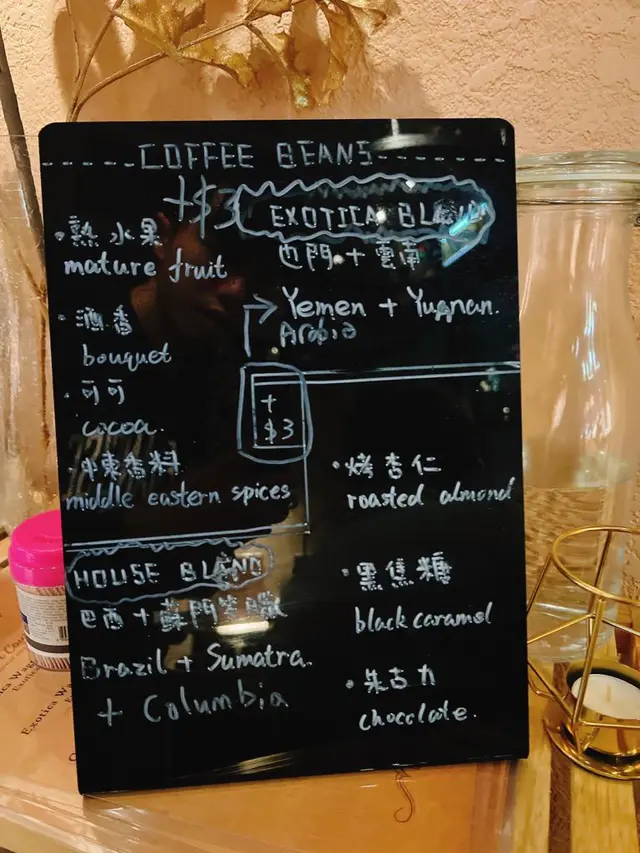 COFFEE BEANS
+$3
EXOTICA BLAND
也門 + 雲南
Yemen + Yugnan.
Arabia
・熟水果
mature fruit
・酒香
bouquet
・可可
cocoa.
・中東香料
middle eastern spices
+
$3
HOUSE BLAND
巴西 + 蘇門答臘
Brazil + Sumatra.
+ Columbia
・烤杏仁
roasted almond
・黑焦糖
black caramel
・朱古力
chocolate.